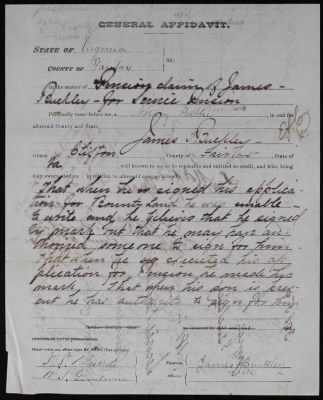 GENERAL AFFIDAVIT.
STATE OF Virginia
COUNTY OF Fairfax ss:
In the matter of Pension claim of James
Buckley for Service Pension
Personally came before me, a Notary Public in and for
aforesaid County and State,
James Buckley
Clifton County Fairfax State of
Va well known to me to be reputable and entitled to credit, and who, being
duly sworn in relation to aforesaid
That when he signed his applica
tion for Bounty Land he was unable
to write and he believes that he signed
by mark but that he may have au
thorized someone to sign for him
that when he executed his ap
plication for Pension he made his
mark, That when his son is pres
ent he has authority to sign for him
James Buckley
mark